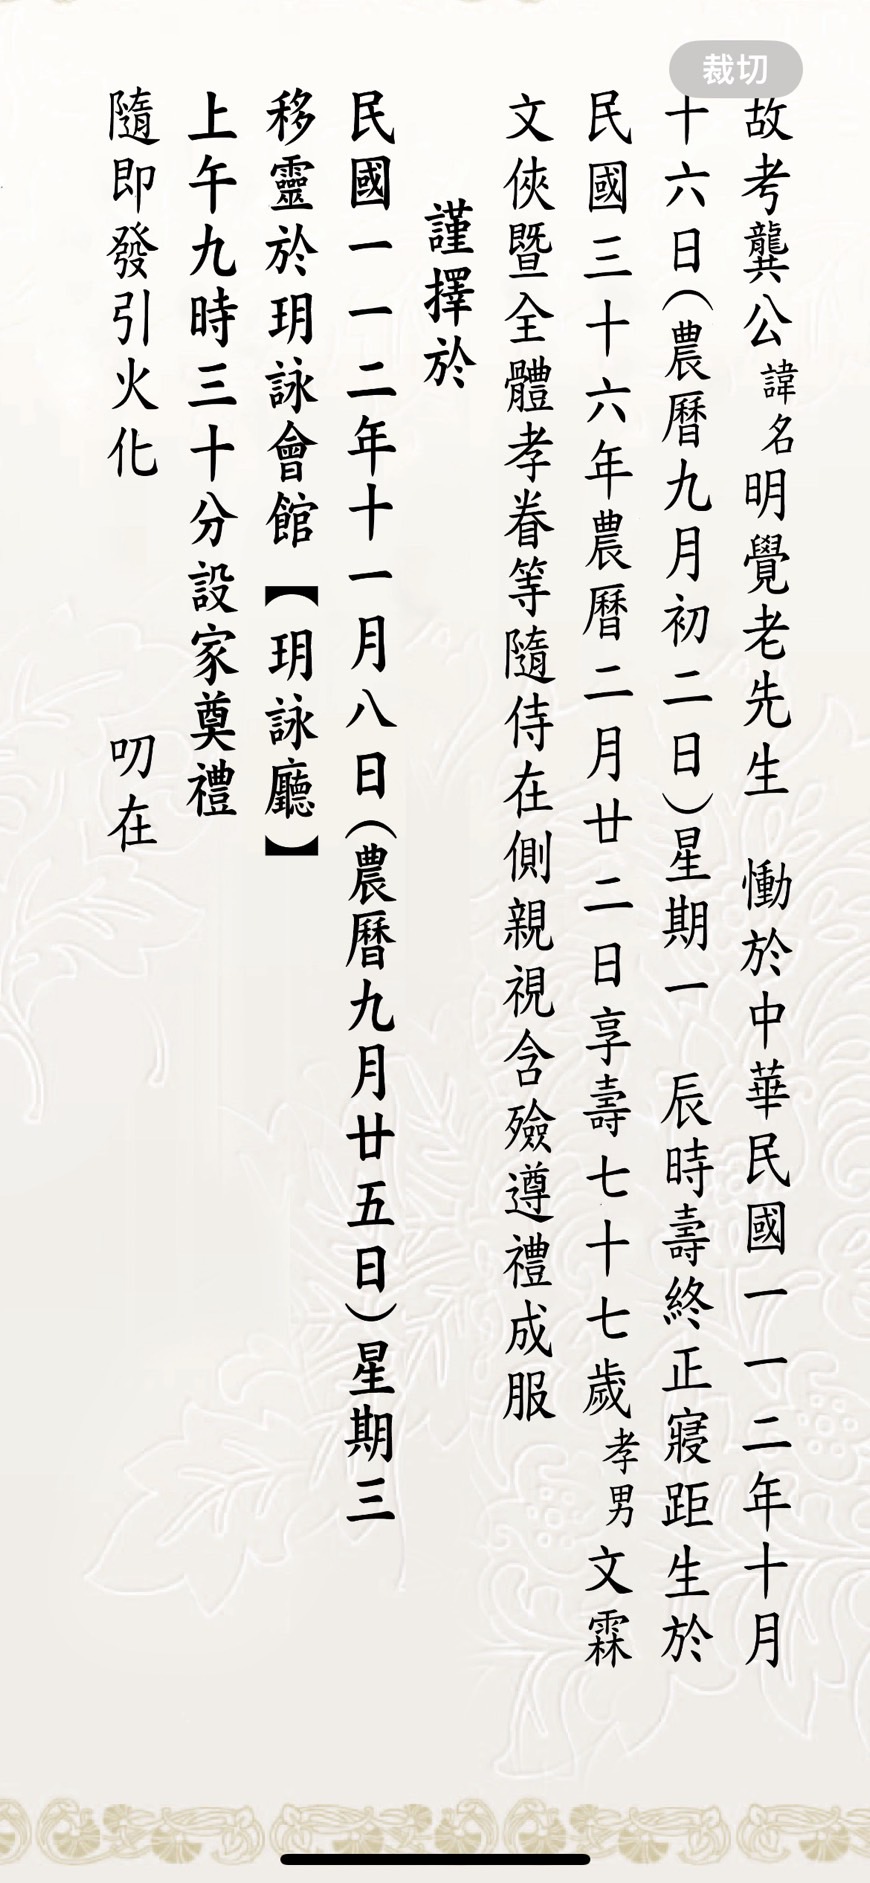 裁切
故考龔公諱名明覺老先生　慟於中華民國一一二年十月
十六日(農曆九月初二日)星期一　辰時壽終正寢距生於
民國三十六年農曆二月廿二日享壽七十七歲孝男文霖
文俠暨全體孝眷等隨侍在側親視含殮遵禮成服
謹擇於
民國一一二年十一月八日(農曆九月廿五日)星期三
移靈於玥詠會館【玥詠廳】
上午九時三十分設家奠禮
隨即發引火化　叨在